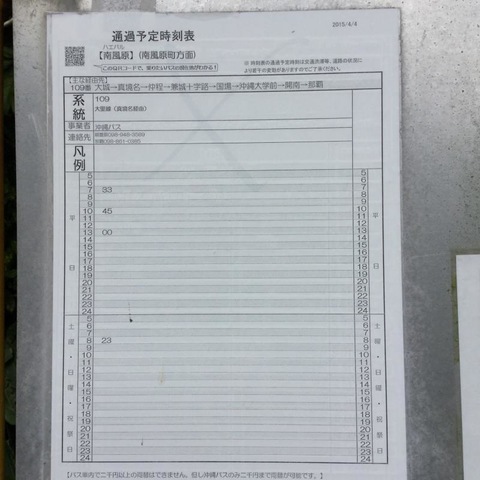 通過予定時刻表
2015/4/4
ハエバル
【南風原】(南風原町方面)
このQRコードで、乗りたいバスの現在地がわかる!
※ 時刻表の通過予定時刻は交通渋滞等、道路の状況に
より若干の変動がありますのでご了承ください。
【主な経由先】
109番 大城→真境名→仲程→兼城十字路→国場→沖縄大学前→開南→那覇
系統 109
大里線(真境名経由)
事業者 沖縄バス
連絡先
凡例
平日
5 5
6 6
7 33 7
8 8
9 9
10 45 10
11 11
12 12
13 00 13
14 14
15 15
16 16
17 17
18 18
19 19
20 20
21 21
22 22
23 23
24 24
土曜・日曜・祝祭日
5 5
6 6
7 7
8 23 8
9 9
10 10
11 11
12 12
13 13
14 14
15 15
16 16
17 17
18 18
19 19
20 20
21 21
22 22
23 23
24 24
【バス車内で二千円以上の両替はできません。但し沖縄バスのみ二千円まで両替が可能です。】